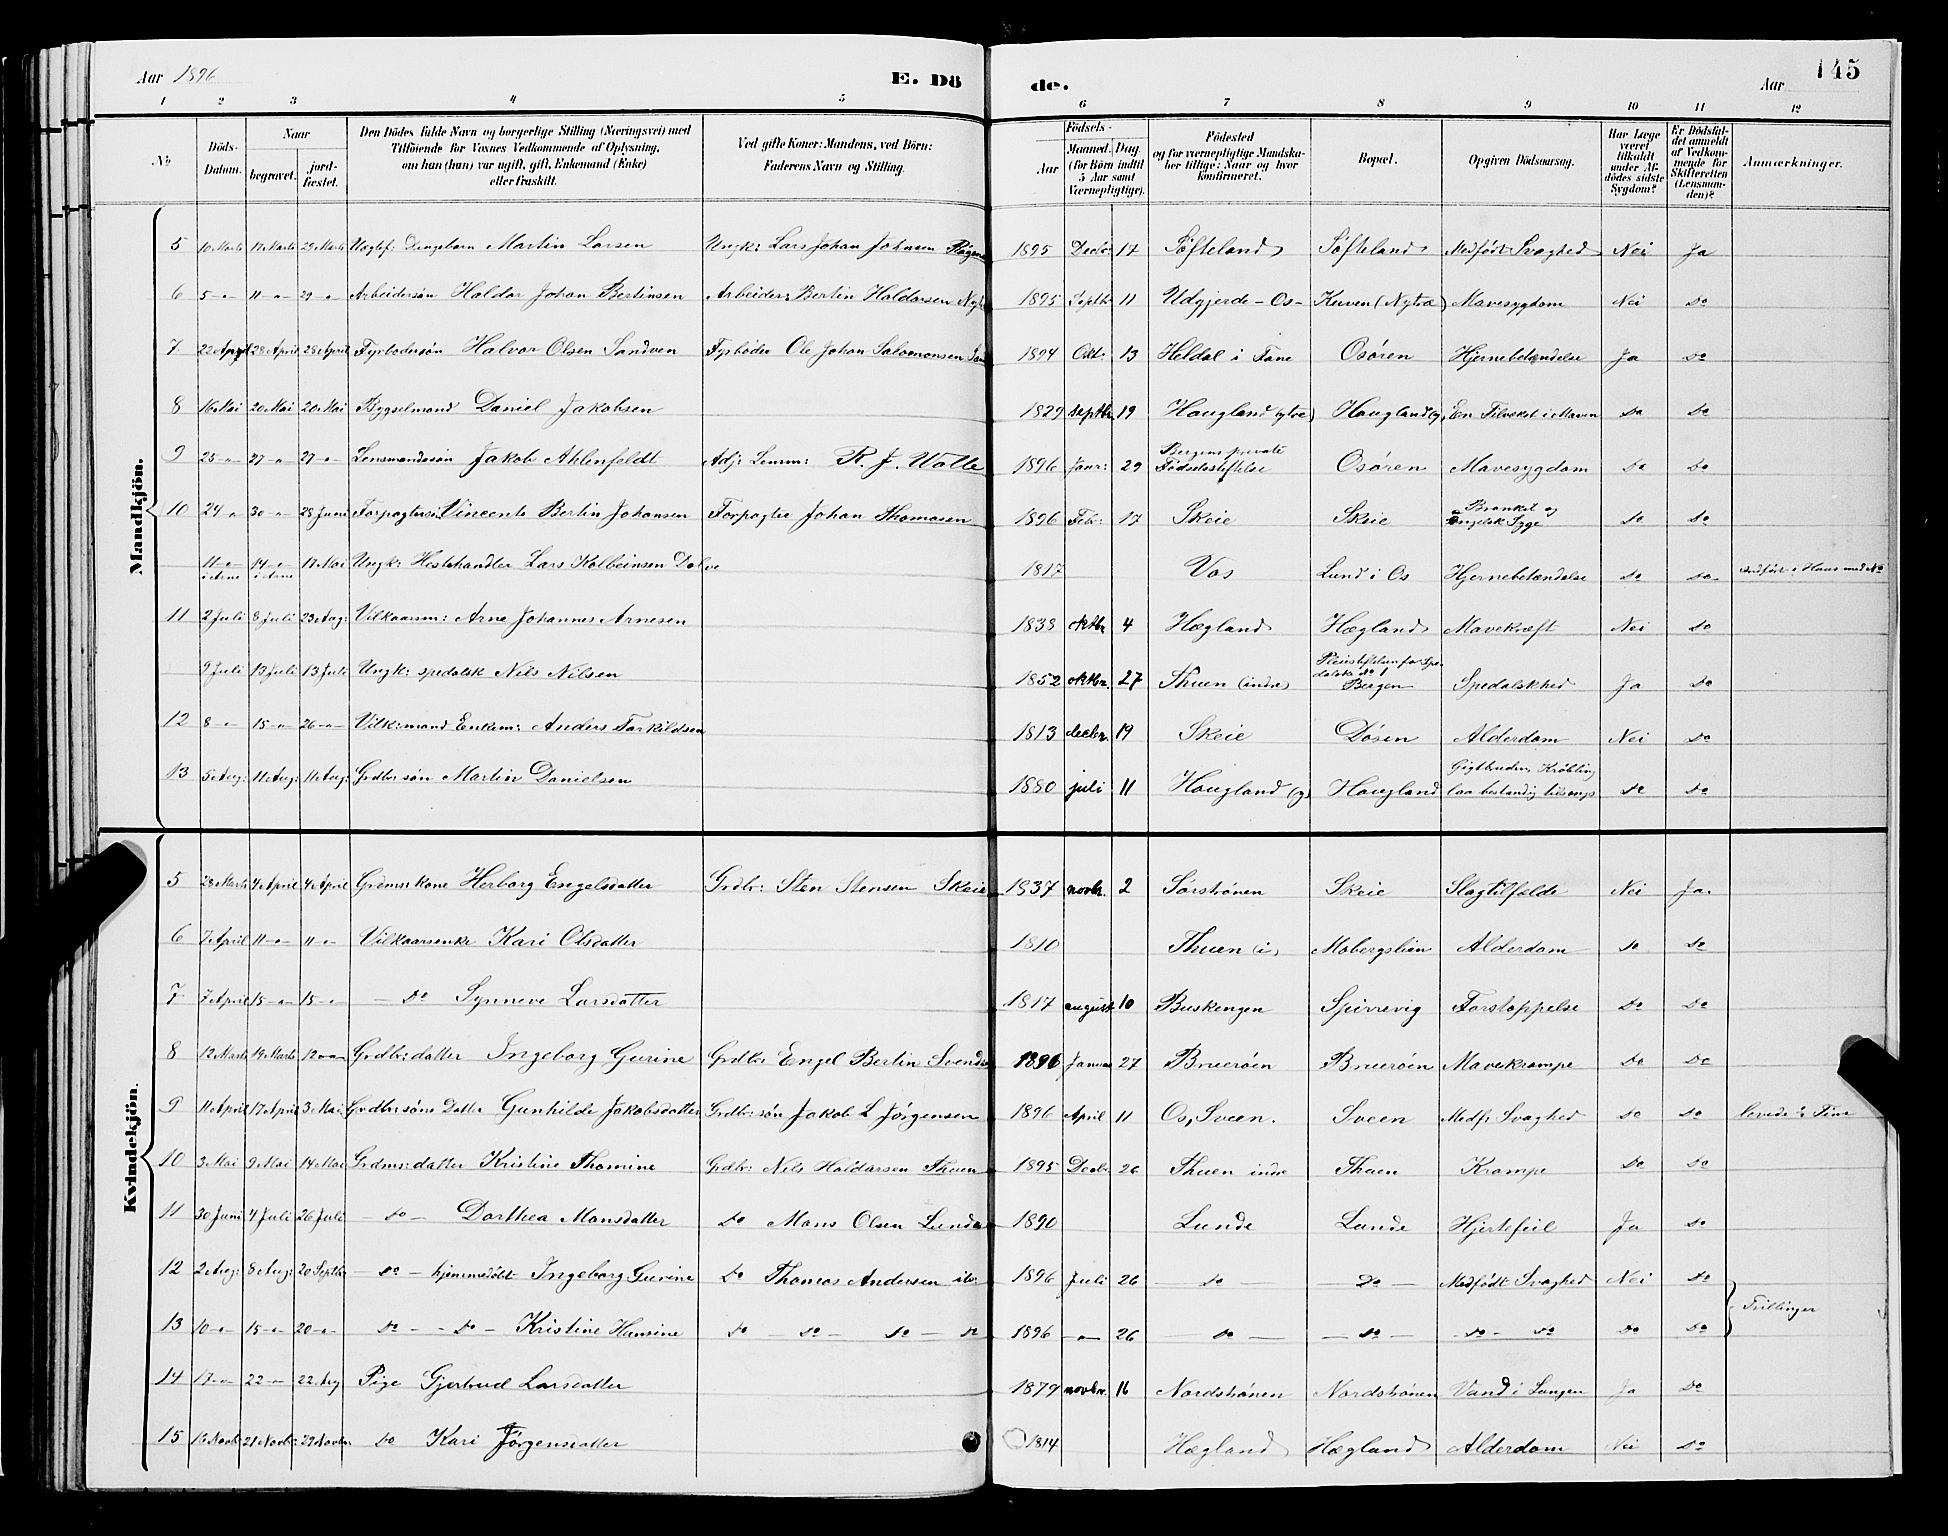 Aar 1896 E. Dö de. Aar 145
1 2 3 4 5 6 7 8 9 10 11 12
No
Döds-Datum.
Naar
begravet.
jord-fæstet.
Den Dödes fulde Navn og borgerlige Stilling (Næringsvei) med
Tilföiende for Voxnes Vedkommende af Oplysning,
om han (hun) var ugift, gift, Enkemand (Enke)
eller fraskilt.
Ved gifte Koner: Mandens, ved Börn:
Faderens Navn og Stilling.
Födsels-
Aar
Maaned. Dag.
(for Börn indtil
5 Aar samt
Værnepligtige).
Födested
og for værnepligtige Mandska-
ber tillige: Naar og hvor
konfirmeret.
Bopæl.
Opgiven Dödsaarsag.
Har Læge
været
tilkaldt
under Af-
dödes sidste
Sygdom?
Er Dödsfal-
det anmeldt
af Vedkom-
mende for
Skifteretten
(Lensman-
den)?
Anmærkninger.
Mandkjön.
5 10 Marts 17 Marts 29 Marts Uægtef: Drengebarn Martin Larsen Ungk: Lars Johan Johnsen 1895 Decbr: 17 Söfteland Söfteland Medfödt Svaghed Nei Ja
6 5 -"- 11 -"- 29 -"- Arbeidersøn Haldor Johan Bertinsen Arbeider: Bertin Haldorsen 1895 Septb: 11 Udgjerde - Os - Kuven (Nytræ) Mavesygdom Nei Do
7 22 April 28 April 28 April Fyrbödersøn Halvor Olsen Sandven Fyrböder Ole Johan Salomonsen 1894 Okt: 13 Heldal i Fane Osören Hjernebetændelse Ja Do
8 16 Mai 20 Mai 20 Mai Bygselmand Daniel Jakobsen 1829 septbr. 19 Haugland (ytre) Haugland (y) En Tilvekst i Maven Do Do
9 25 -"- 27 -"- 27 -"- Lensmandssøn Jakob Ahlenfeldt Adj: Lensm: R. J. Wolle 1896 Janr: 29 Bergens private Födselsstiftelse Osören Mavesygdom Do Do
10 24 " 30 -"- 28 Juni Forpagtersøn Vincents Bertin Johansen Forpagter Johan Thomasen 1896 Febr: 17 Skeie Skeie Bronkit og engelsk Syge Do Do
11 -"- i Arne 14 -"- i Arne 17 Mai Ungk: Hestehandler Lars Kolbeinsen Dolve 1817 Vos Lund i Os Hjernebetændelse Do Do Indfört i Haus med No
11 2 Juli 8 Juli 23 Aug: Vilkaarsm: Arne Johannes Arnesen 1838 oktbr. 4 Hægland Hægland Mavekræft Nei Do
9 Juli 13 Juli 13 Juli Ungk: spedalsk Nils Nilsen 1852 oktbr. 27 Thuen (indre) Pleiestiftelsen for Spedalske No 1 Bergen Spedalskhed Ja Do
12 8 -"- 15 -"- 26 -"- Vilk: mand Enkem: Anders Torkildsen 1813 decbr. 19 Skeie Døsen Alderdom Nei Do
13 5 Aug: 11 Aug: 11 Aug: Grdbr søn Martin Danielsen 1880 juli 11 Haugland (y) Haugland Gigtbruden, Kröbling laa bestandig tilsengs Do Do
Kvindekjön.
5 28 Marts 4 April 4 April Grdms: kone Herborg Engelsdatter Grdbr: Sten Stensen Skeie 1837 novbr. 2 Sörströnen Skeie Slagtilfælde Nei Ja.
6 7 April 11 -"- 11 -"- Vilkaarsenke Kari Olsdatter 1810 Thuen (i) Mobergslien Alderdom Do Do
7 7 April 15 -"- 15 -"- - Do Synneve Larsdatter 1817 august. 10 Buskengen Spirrevig Forstoppelse Do Do
8 12 Marts 19 Marts 12 Grdbr: datter Ingeborg Gurine Grdbr Engel Bertin Svendsen 1896 Januar 27 Bruerøen Bruerøen Mavekrampe Do Do
9 11 April 17 April 3 Mai Grdbrsøns Datter Gunhilde Jakobsdatter Grdbr: søn Jakob L Jørgensen 1896 April 11 Os, Sveen. Sveen Medf: Svaghed Do Do levede 2 Time
10 3 Mai 9 Mai 14 Mai Grdms: datter Kristine Thomine Grdbr: Nils Haldorsen Thuen 1895 Decbr 26 Thuen indre Thuen Krampe Do Do
11 30 Juni 4 Juli 26 Juli - Do - Dorthea Monsdatter Do Mons Olsen Lunde 1890 Lunde Lunde Hjertefeil Ja Do
12 2 Aug: 8 Aug: 20 Septbr - Do - hjemmedöbt Ingeborg Gurine Do Thomas Andersen ibr 1896 Juli 26 - Do - Do - Medfödt Svaghed Nei Do
Trillinger
13 10 -"- 15 -"- 20 -"- Do - - Do - Kristine Hansine Do Do - Do - Do 1896 -"- 26 - Do - - Do - Do - Do Do Do
14 17 -"- 22 -"- 22 Aug Pige Gjertrud Larsdatter 1879 novbr. 16 Nordströnen Nordströnen Vand i Lungen Ja Do
15 16 Novbr 21 Novbr: 29 Novbr. Do Kari Jörgensdatter 1814 Hægland Hægland Alderdom Nei Do